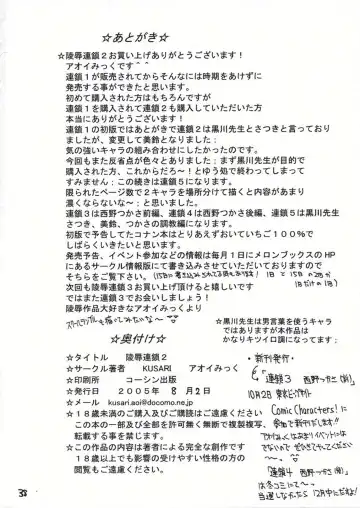 ☆あとがき☆
☆陵辱連鎖2お買い上げありがとうございます！
アオイみっくです＾＾
連鎖1が販売されてからそんなには時期をあけずに
発売する事ができたと思います。
初めて購入された方はもちろんですが
連鎖1に続けて連鎖2も購入していただいた方
本当にありがとうございます！
連鎖1の初版ではあとがきで連鎖2は黒川先生とさつきと言っており
ましたが、変更して美鈴となりました；
気の強いキャラの組み合わせにしたかったのです。
今回もまた反省点が色々とありました；まず黒川先生が目的で
購入された方、これからだろ～！とゆう処で終わってしまって
すみません；この続きは連鎖5になります。
限られたページ数で2キャラを場所分けて描くと内容があまり
濃くならないな～；と思いました。
連鎖3は西野つかさ前編、連鎖4は西野つかさ後編、連鎖5は黒川先生
さつき、美鈴、つかさの調教編になります。
初版で予告してたコナン本はとりあえずおいていちご100％で
しばらくいきたいと思います。
発売予告、イベント参加などの情報は毎月1日にメロンブックスのHP
にあるサークル情報版にて書き込みさせていただいておりますので
そちらをご覧下さい。
次回も陵辱連鎖3お買い上げ頂けると嬉しいです
ではまた連鎖3でお会いしましょう！
陵辱作品大好きなアオイみっくより
スクールランブルも描いてみたいな～
☆黒川先生は男言葉を使うキャラ
ではありますが本作品は
かなりキツイロ調になってます；
☆奥付け☆
☆タイトル　陵辱連鎖2
☆サークル著者　KUSARI　アオイみっく
☆印刷所　コーシン出版
☆発行日　2005年　8月2日
☆メール　kusari.aoi@docomo.ne.jp
☆18歳未満のご購入及びご購読はご遠慮ください
この本の一部及び全部を許可無く無断で複製複写、
転載する事を禁じます。
☆この作品の内容は著者による完全な創作です
18歳以上でも影響の受けやすい性格の方の
閲覧もご遠慮ください。
・新刊発行・
「連鎖3 西野つかさ(前)」
10月2日 東京ビッグサイト
Comic Characters！に
参加で新刊だします！！
「連鎖4 西野つかさ(後)」
は冬コミにて～
当選しなかったら12月中にだすよ！
38